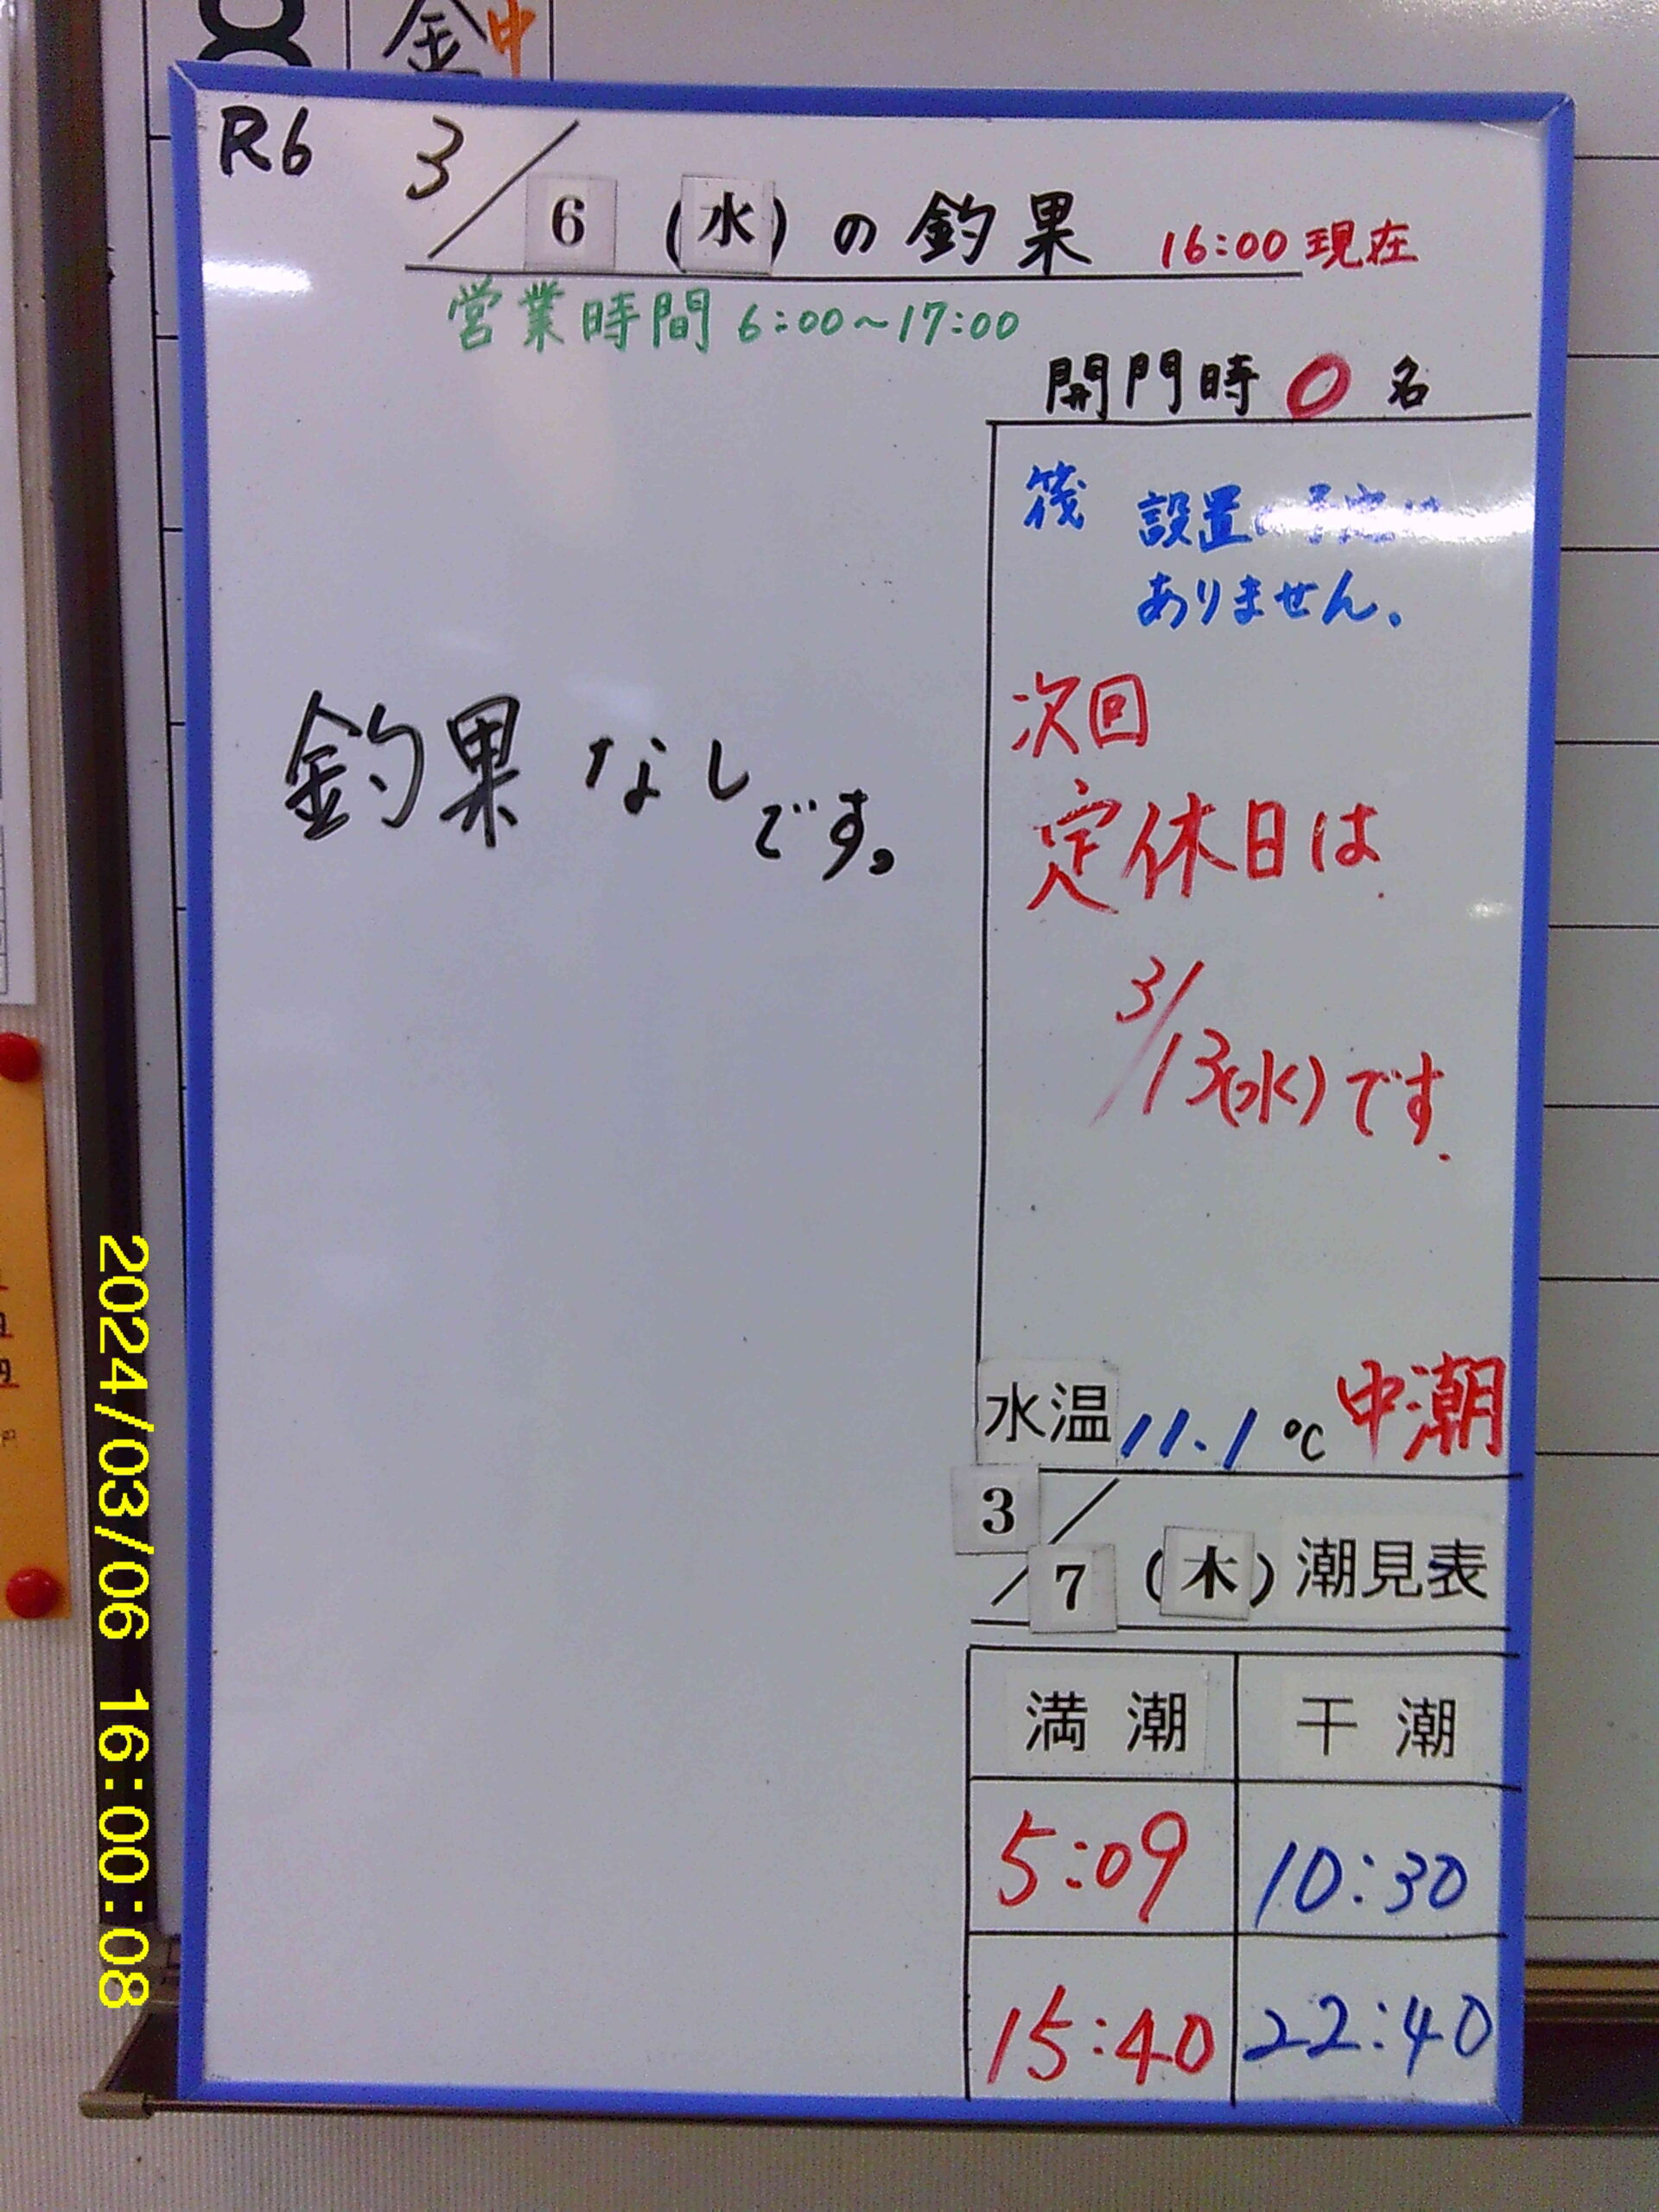 金中
R6 3/6 (水) の釣果 16:00現在
営業時間 6:00～17:00
開門時 0 名
筏 設置の予定は
ありません。
次回
定休日は
3/13(水)です.
釣果なしです。
水温 11.1 ℃ 中潮
3/7 (木) 潮見表
満潮 干潮
5:09 10:30
15:40 22:40
2024/03/06 16:00:08